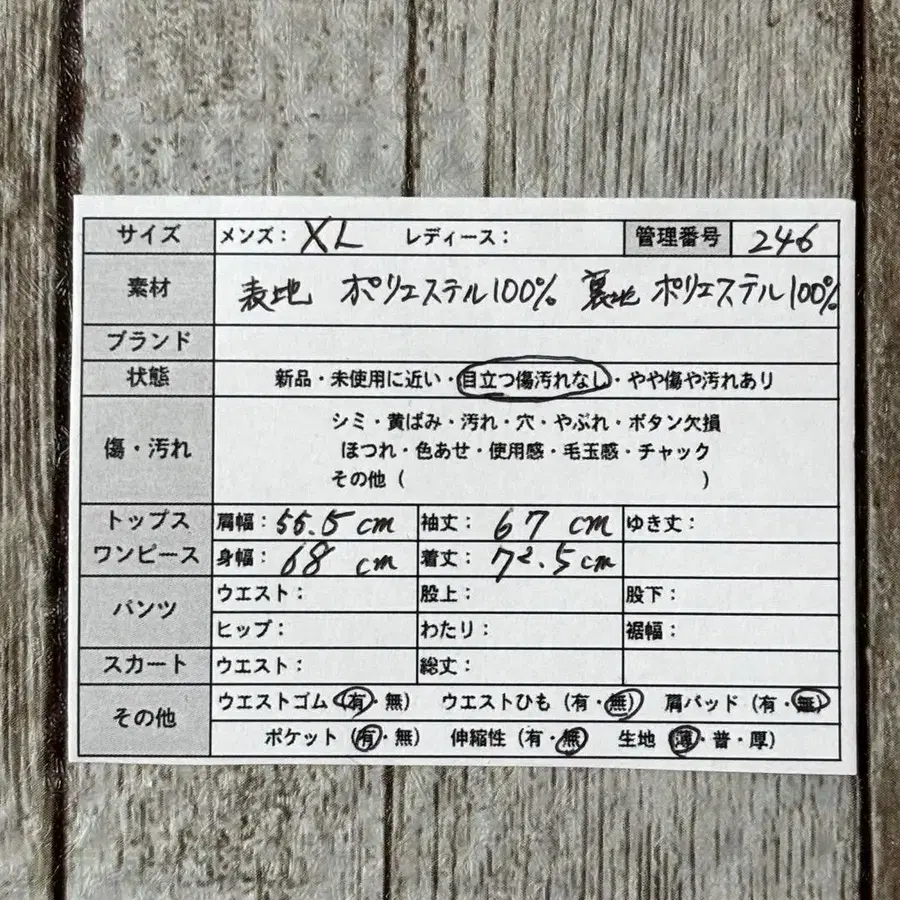 サイズ メンズ： XL レディース： 管理番号 246
素材 表地 ポリエステル100% 裏地 ポリエステル100%
ブランド
状態 新品・未使用に近い・目立つ傷汚れなし・やや傷や汚れあり
傷・汚れ シミ・黄ばみ・汚れ・穴・やぶれ・ボタン欠損
ほつれ・色あせ・使用感・毛玉感・チャック
その他（ ）
トップス 肩幅：55.5cm 袖丈： 67 cm ゆき丈：
ワンピース 身幅： 68 cm 着丈： 72.5cm
パンツ ウエスト： 股上： 股下：
ヒップ： わたり： 裾幅：
スカート ウエスト： 総丈：
その他 ウエストゴム（有・無） ウエストひも（有・無） 肩パッド（有・無）
ポケット（有・無） 伸縮性（有・無） 生地（薄・普・厚）